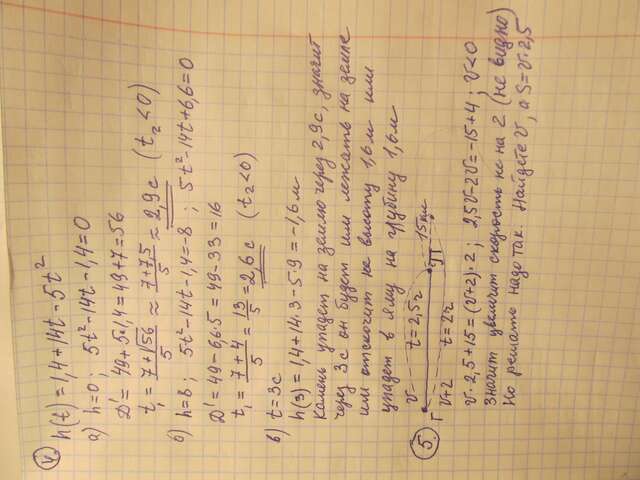 4. h(t) = 1,4 + 14t - 5t²
а) h=0; 5t² - 14t - 1,4 = 0
D' = 49 + 5·1,4 = 49 + 7 = 56
t₁ = (7+√56)/5 ≈ (7+7,5)/5 ≈ 2,9 с (t₂ < 0)
б) h=8; 5t² - 14t - 1,4 = -8; 5t² - 14t + 6,6 = 0
D' = 49 - 6,6·5 = 49 - 33 = 16
t₁ = (7+4)/5 = 13/5 = 2,6 с (t₂ < 0)
в) t = 3с
h(3) = 1,4 + 14·3 - 5·9 = -1,6 м
Камень упадет на землю через 2,9 с, значит
через 3 с он будет или лежать на земле
или отскочит на высоту 1,6 м или
упадет в яму на глубину 1,6 м
5. v t = 2,5 ч 15 км
Г v+2 t = 2 ч П
v·2,5 + 15 = (v+2)·2; 2,5v - 2v = -15 + 4; v < 0
Значит увеличит скорость не на 2 (не видно)
Но решать надо так. Найдете v, а S = v·2,5